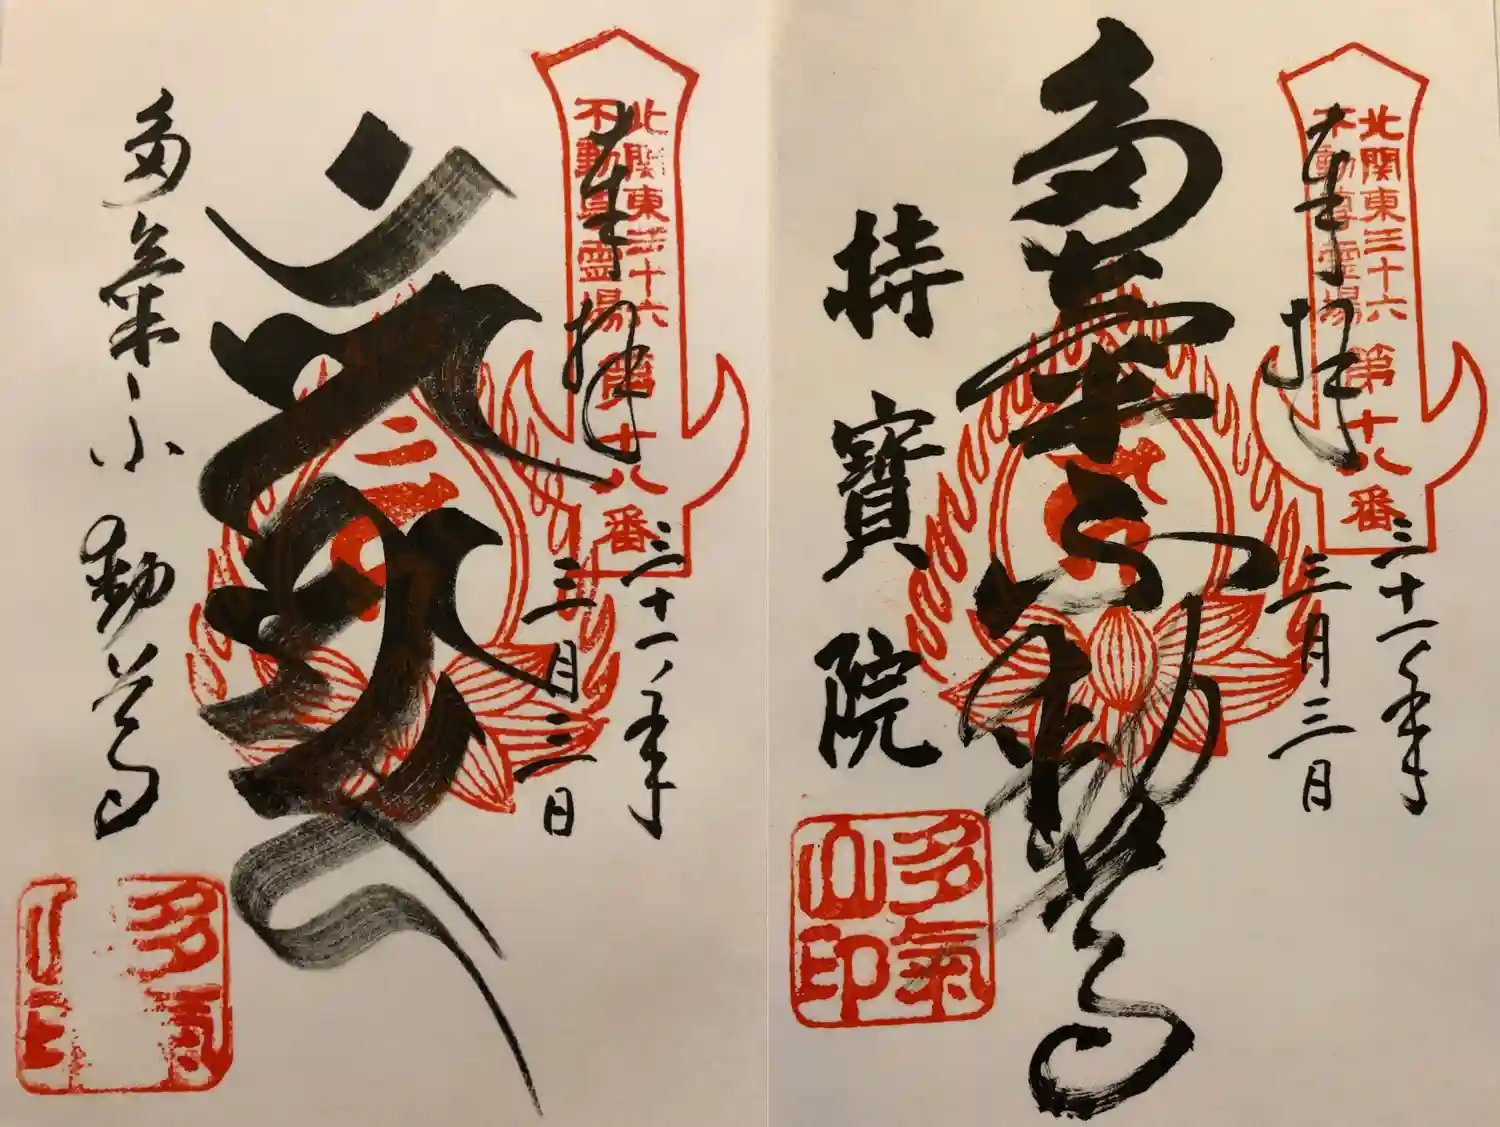 北関東三十六
不動尊霊場
第十八番
奉拝
三十一年
三月三日
多氣不動尊
持寶院
多氣
山印
北関東三十六
不動尊霊場
第十八番
奉拝
三十一年
三月三日
多氣不動尊
多氣